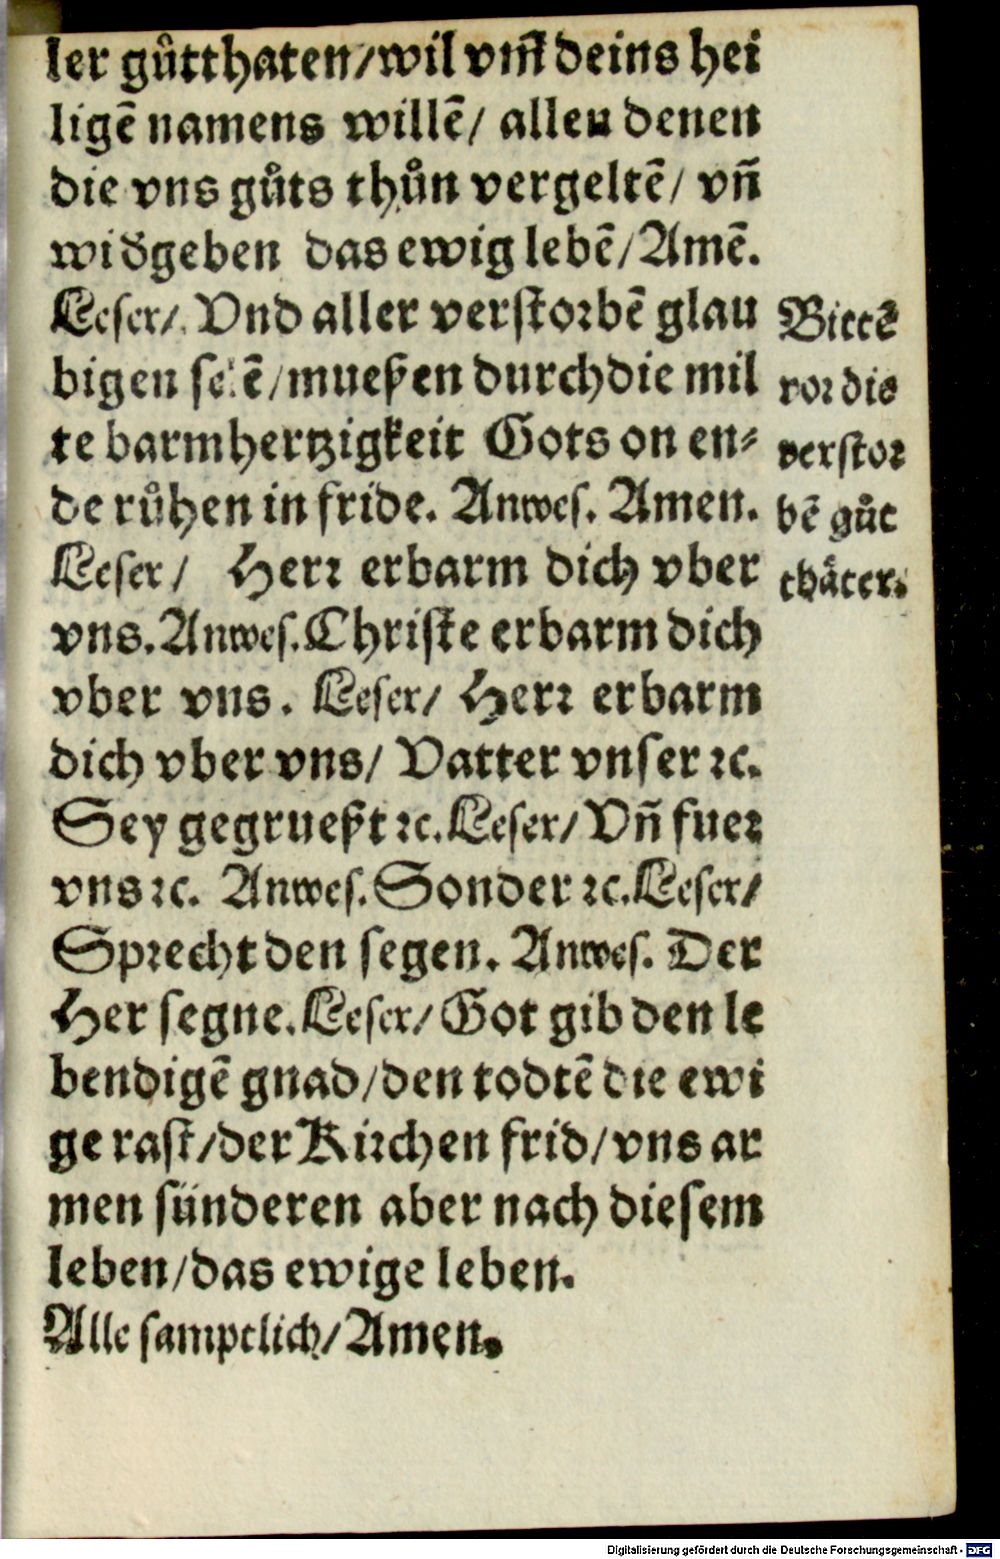 ler guͤtthaten/wil vm̃ deins hei
ligē namens willē/ allen denen
die vns guͦts thuͦn vergeltē/ vñ
widgeben das ewig lebē/Amē.
Leser/ Vnd aller verstorbē glau
bigen selē/mueßen durch die mil
te barmhertzigkeit Gots on en⸗
de ruͦhen in fride. Anwes. Amen.
Leser/ Herr erbarm dich vber
vns. Anwes. Christe erbarm dich
vber vns. Leser/ Herr erbarm
dich vber vns/ Vatter vnser ꝛc.
Sey gegrueßt ꝛc. Leser/ Vñ fuer
vns ꝛc. Anwes. Sonder ꝛc. Leser/
Sprecht den segen. Anwes. Der
Her segne. Leser/ Got gib den le
bendigē gnad/den todtē die ewi
ge rast/der Kirchen frid/vns ar
men sünderen aber nach diesem
leben/das ewige leben.
Alle samptlich/Amen.
Bittē
vor die
verstor
bē guͦt
thäter.
Digitalisierung gefördert durch die Deutsche Forschungsgemeinschaft - DFG